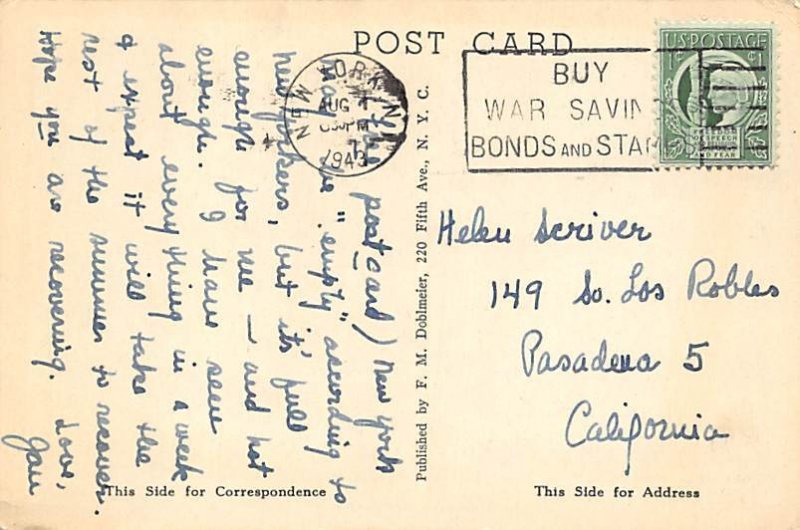 POST CARD
NEW YORK, N.Y.
AUG 4
1943
BUY
WAR SAVINGS
BONDS AND STAMPS
U.S. POSTAGE
1¢ ¢1
FREEDOM
OF SPEECH
AND FEAR
postcard) New York
may be "empty" according to
new yorkers, but it's full
enough for me — and hot
enough. I have seen
about everything in a week
& expect it will take the
rest of the summer to recover.
Hope you are recovering. Love,
Jan
Published by F. M. Doblmeier, 220 Fifth Ave., N. Y. C.
Helen Scriver
149 So. Los Robles
Pasadena 5
California
This Side for Correspondence
This Side for Address